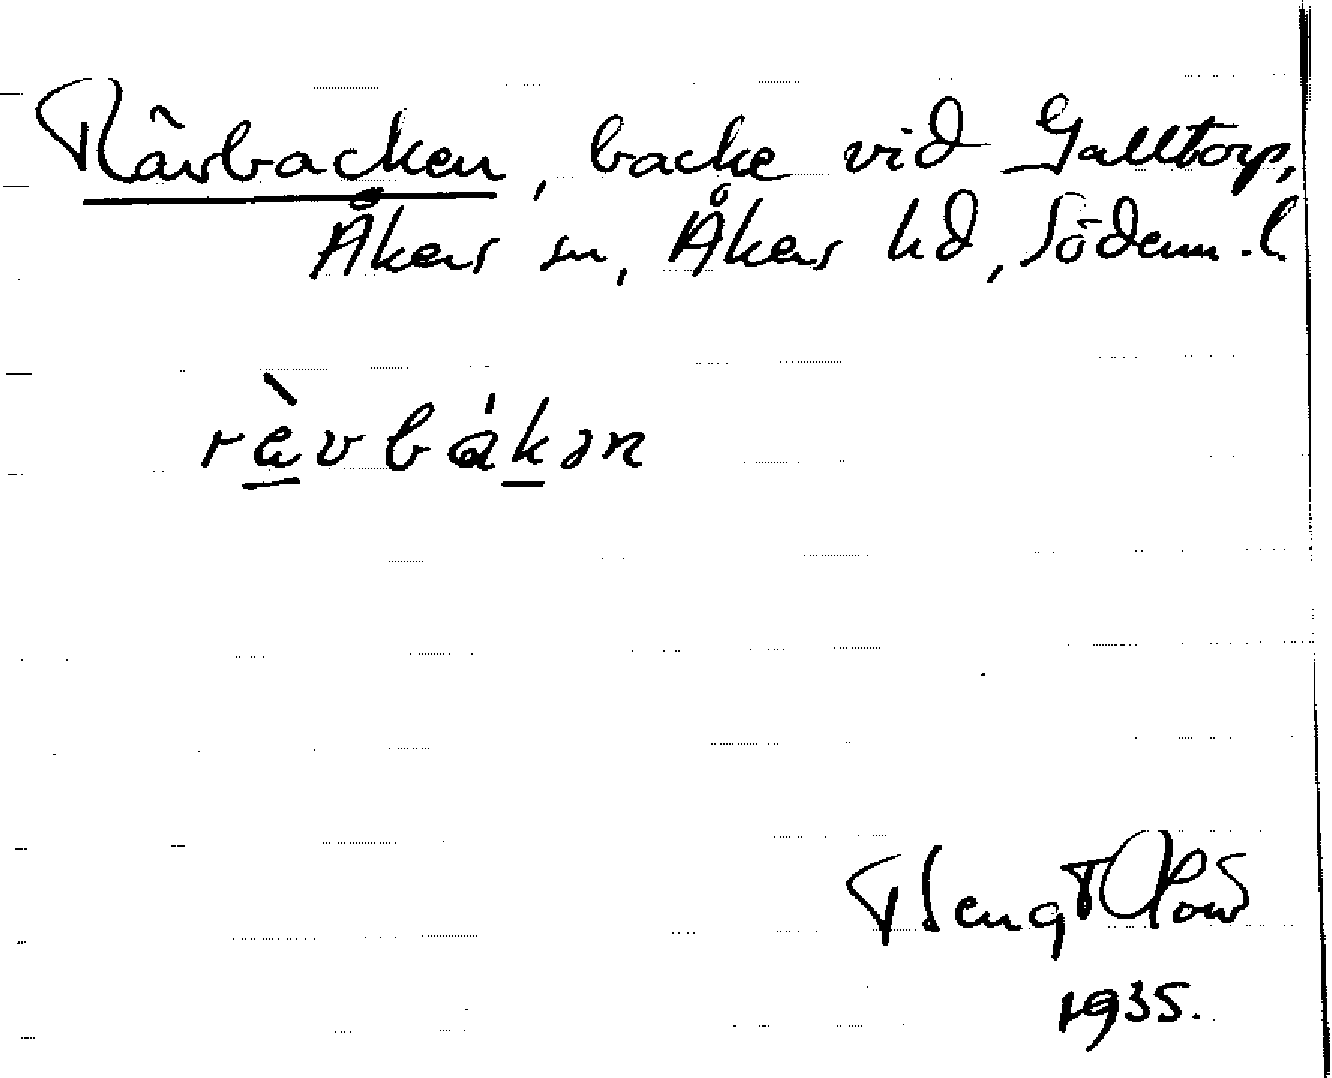 Rävbacken, backe vid Galltorp,
Åkers sn, Åkers hd, Söderm. l
rὲvbákən
Bengt Olow
1935.